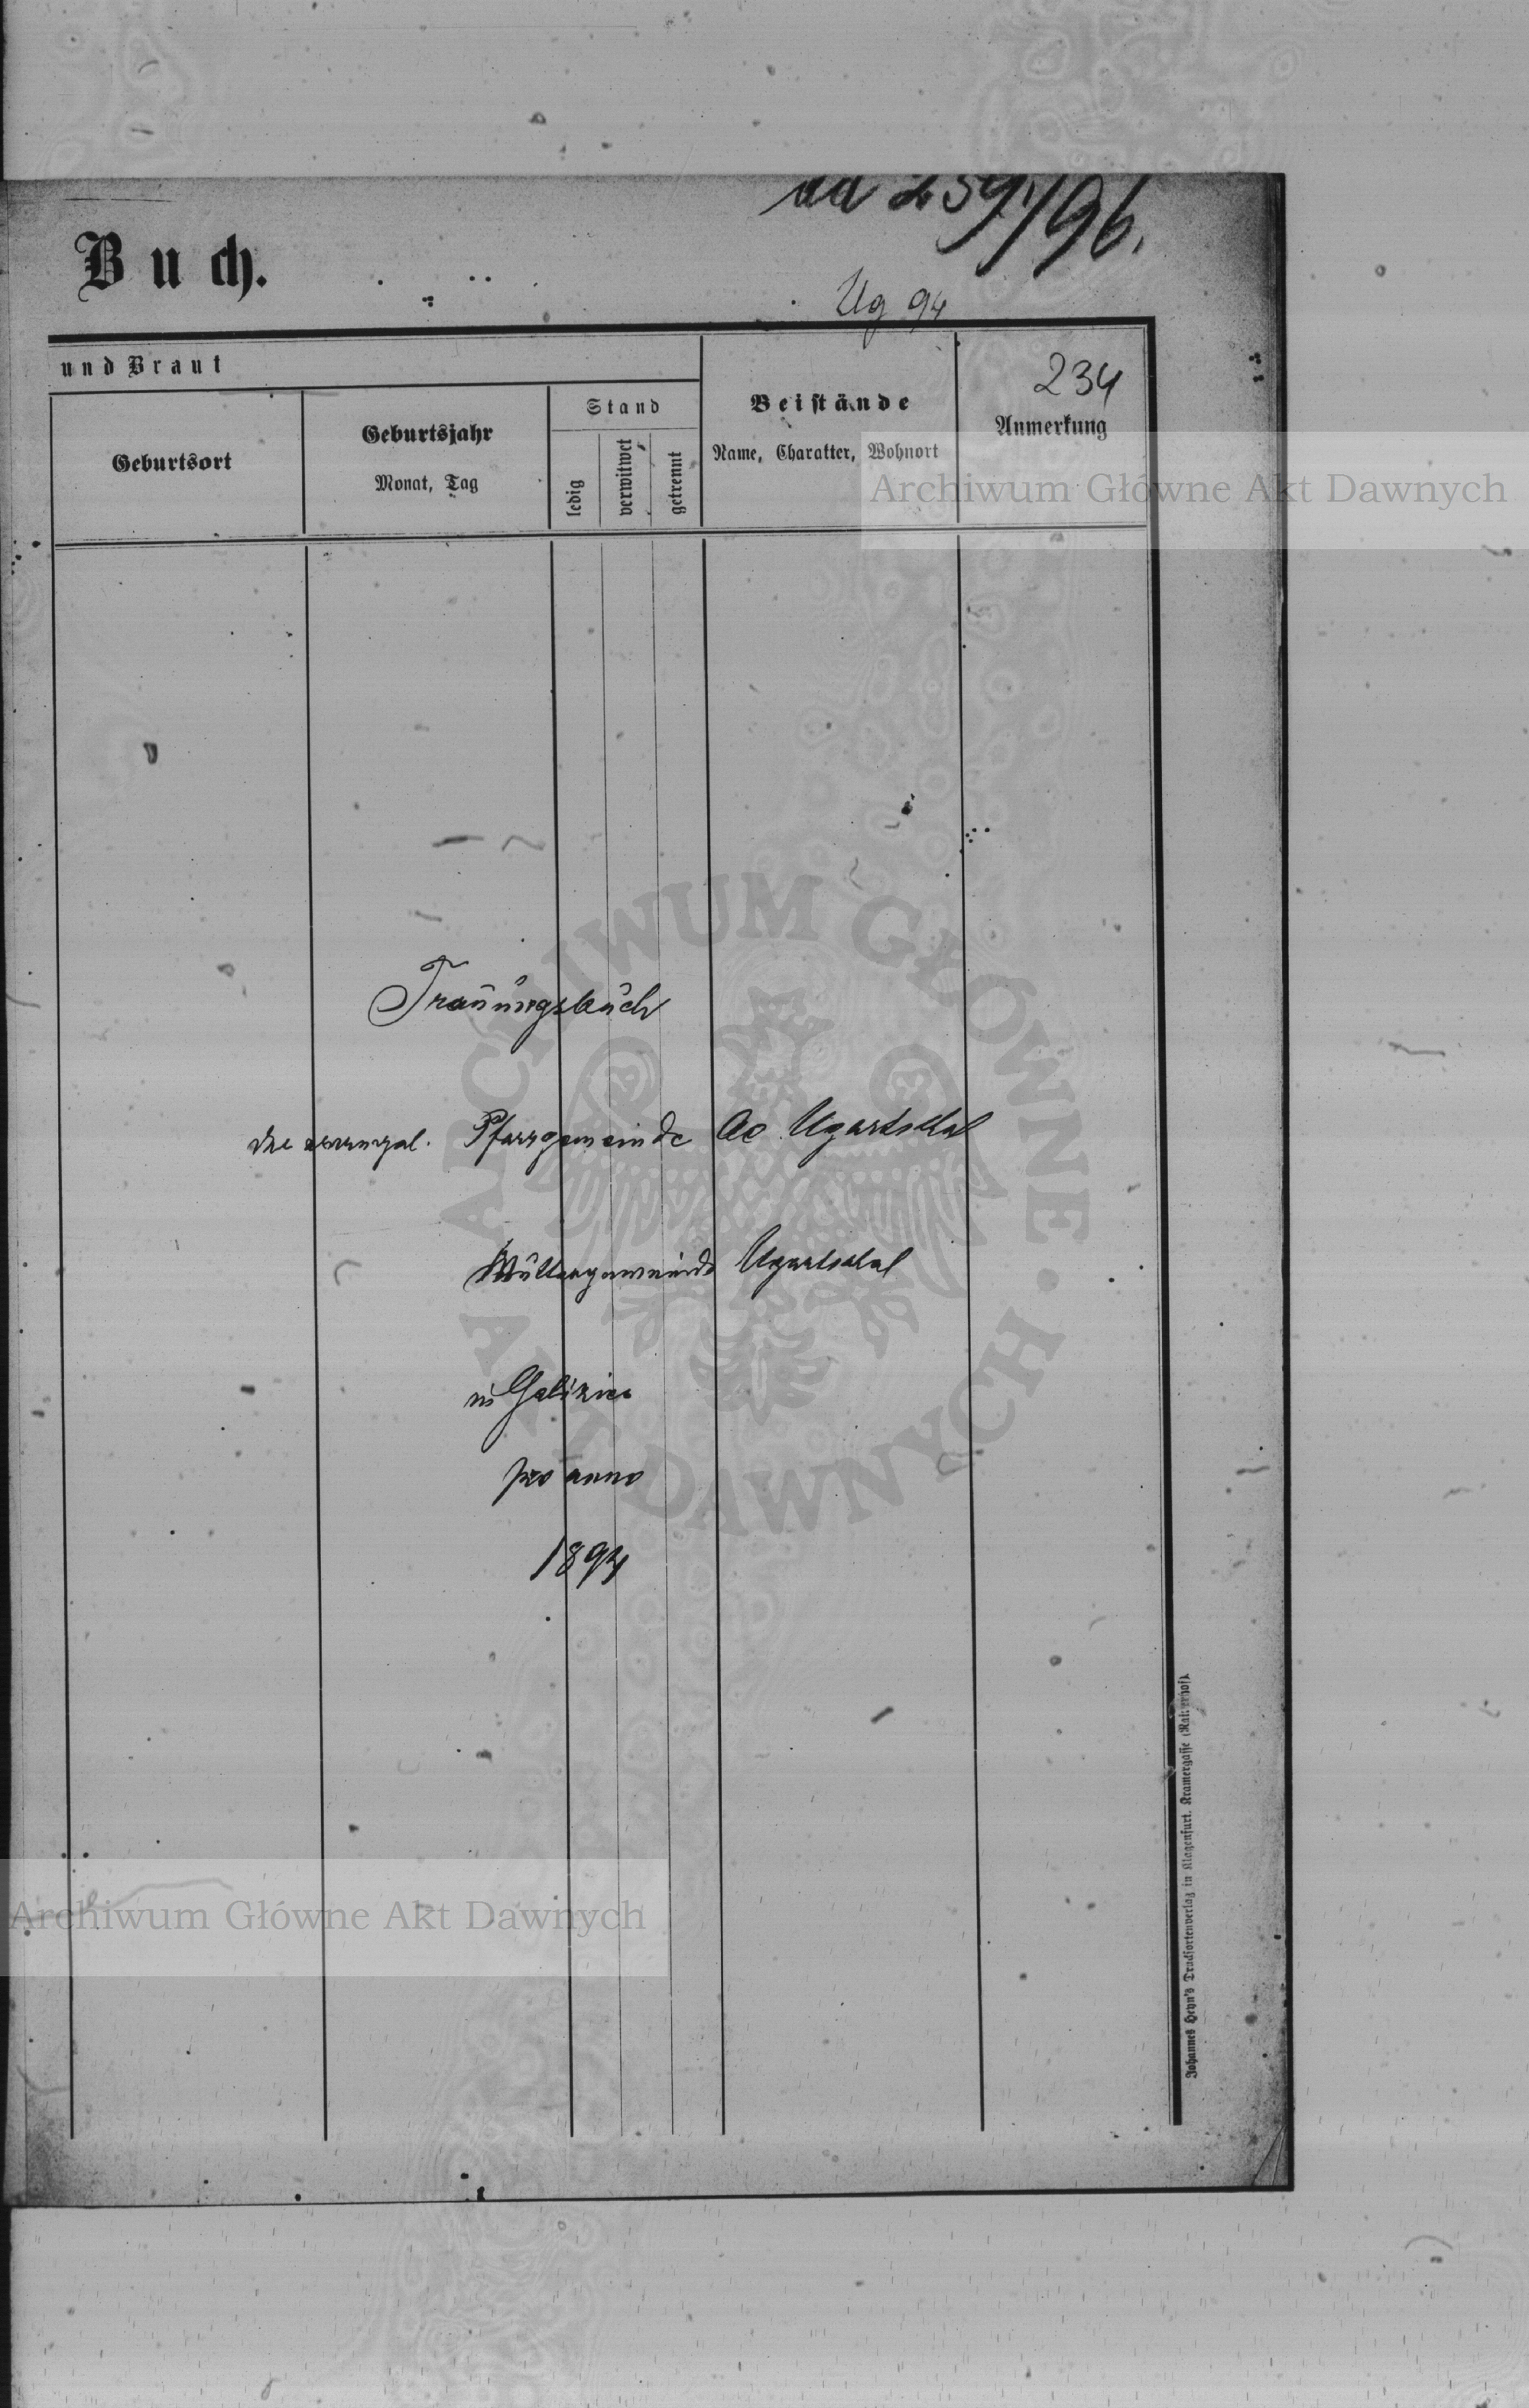 ad 259/96.
Buch.
Ug 94
und Braut
234
Geburtsort
Geburtsjahr
Monat, Tag
Stand
ledig
verwitwet
getrennt
Beistände
Name, Charakter, Wohnort
Anmerkung
Archiwum Główne Akt Dawnych
Trauungsbuch
der evangel. Pfarrgemeinde AC Ugartsthal
Muttergemeinde Ugartsthal
in Galizien
pro anno
1894
ARCHIWUM GŁÓWNE · AKT DAWNYCH
Archiwum Główne Akt Dawnych
Johannes Heyn's Drucksortenverlag in Klagenfurt, Kramergasse